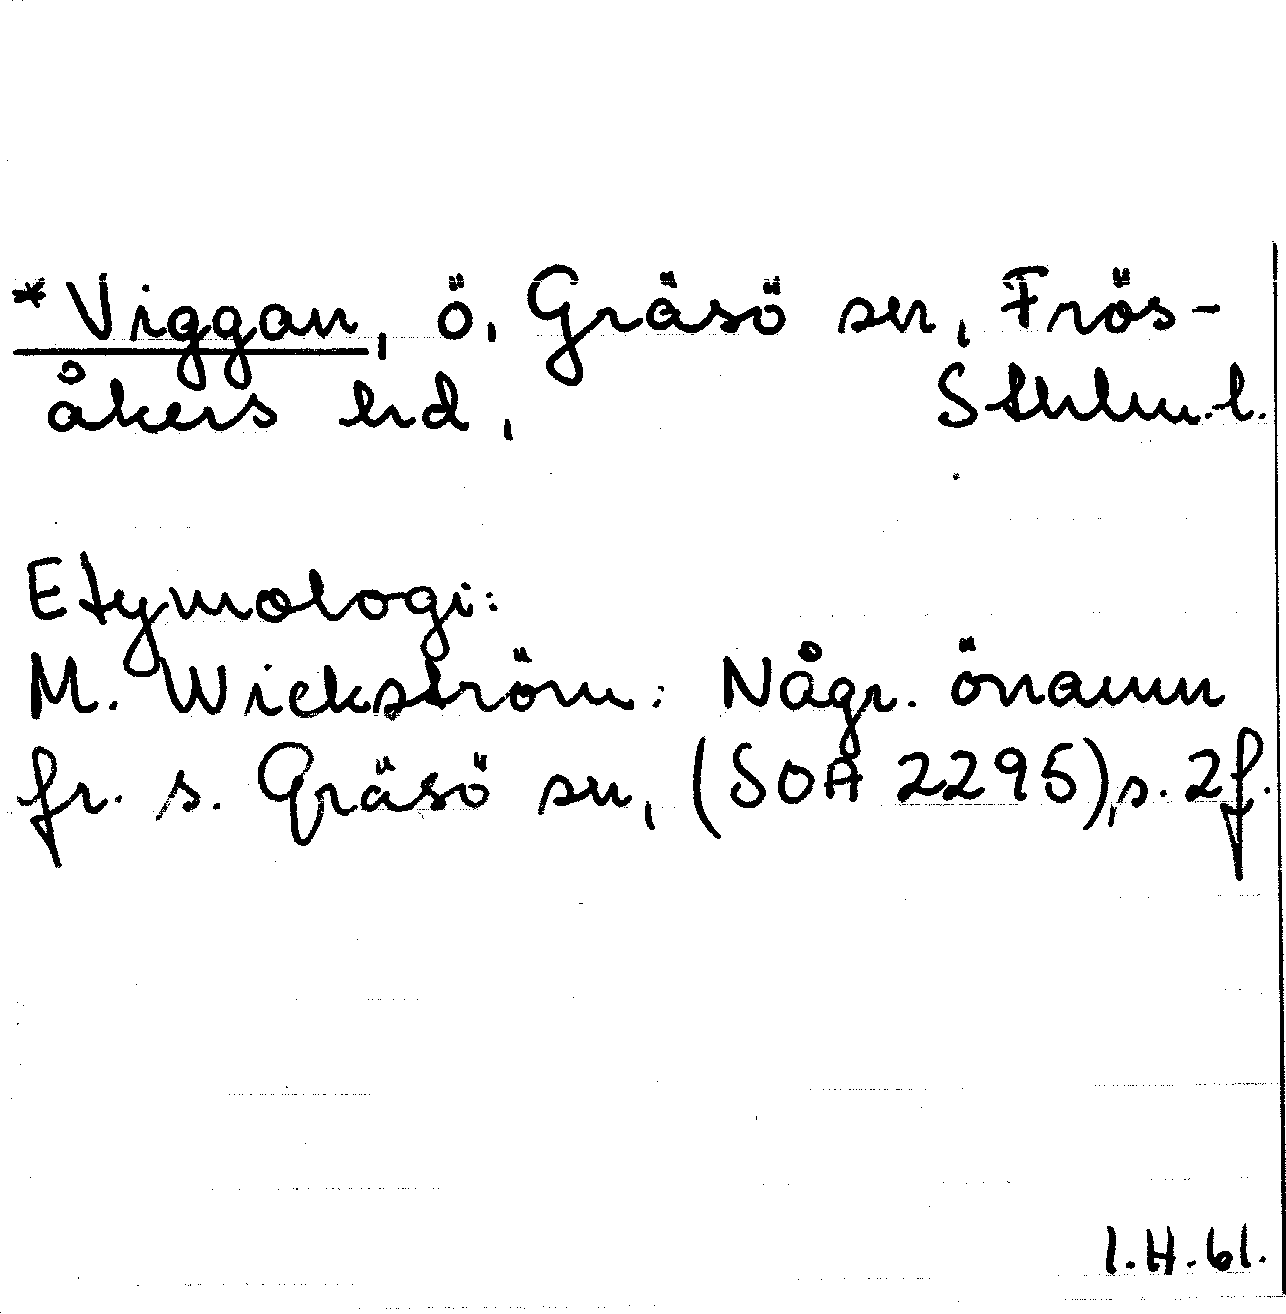 *Viggan, ö, Gräsö sn, Frös-
åkers hd, Sthlm.l.
Etymologi:
M. Wickström: Någr. önamn
fr. s. Gräsö sn, (SOA 2295), s. 2f.
I.H.61.